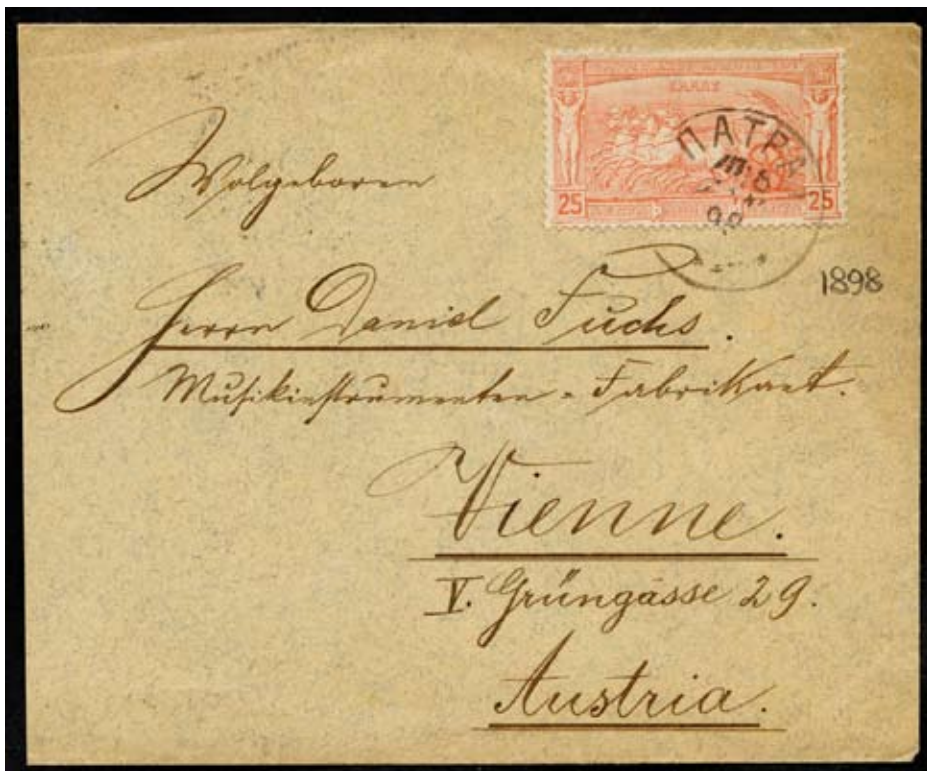 ΕΛΛΑΣ
25 25
ΠΑΤΡΑ
98
1898
Wolgeboren
Herrn Daniel Fuchs.
Musikinstrumenten-Fabrikant.
Vienne.
V. Grüngasse 29.
Austria.